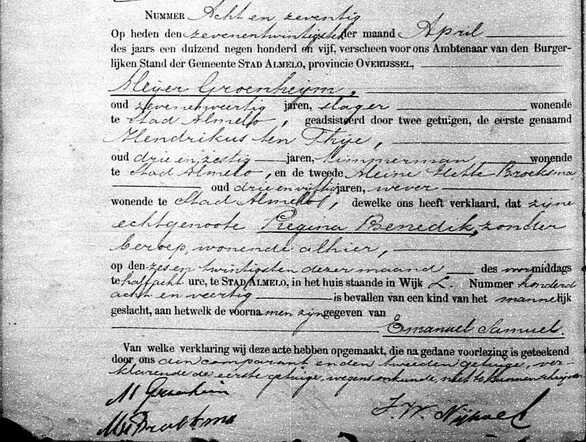 NUMMER Acht en zeventig
Op heden den zevenentwintigsten der maand April
des jaars een duizend negen honderd en vijf, verscheen voor ons Ambtenaar van den Burger-
lijken Stand der Gemeente STAD ALMELO, provincie OVERIJSSEL,
Meijer Groenheijm,
oud zevenenveertig jaren, slager wonende
te Stad Almelo, geadsisteerd door twee getuigen, de eerste genaamd
Hendrikus ten Thije,
oud drie en zestig jaren, timmerman, wonende
te Stad Almelo, en de tweede Broeksma
oud drie en vijftig jaren, wever
wonende te Stad Almelo, dewelke ons heeft verklaard, dat zijne
echtgenoote Regina Benedik, zonder
beroep, wonende alhier,
op den zes en twintigsten dezer maand des voormiddags
te half acht ure, te STAD ALMELO, in het huis staande in Wijk L. Nummer honderd
acht en veertig is bevallen van een kind van het mannelijk
geslacht, aan hetwelk de voornamen zijn gegeven van
Emanuel Samuel.
Van welke verklaring wij deze acte hebben opgemaakt, die na gedane voorlezing is geteekend
door ons den comparant en den tweeden getuige, ver-
klarende de eerste getuige, wegens onkunde, niet te kunnen schrijven